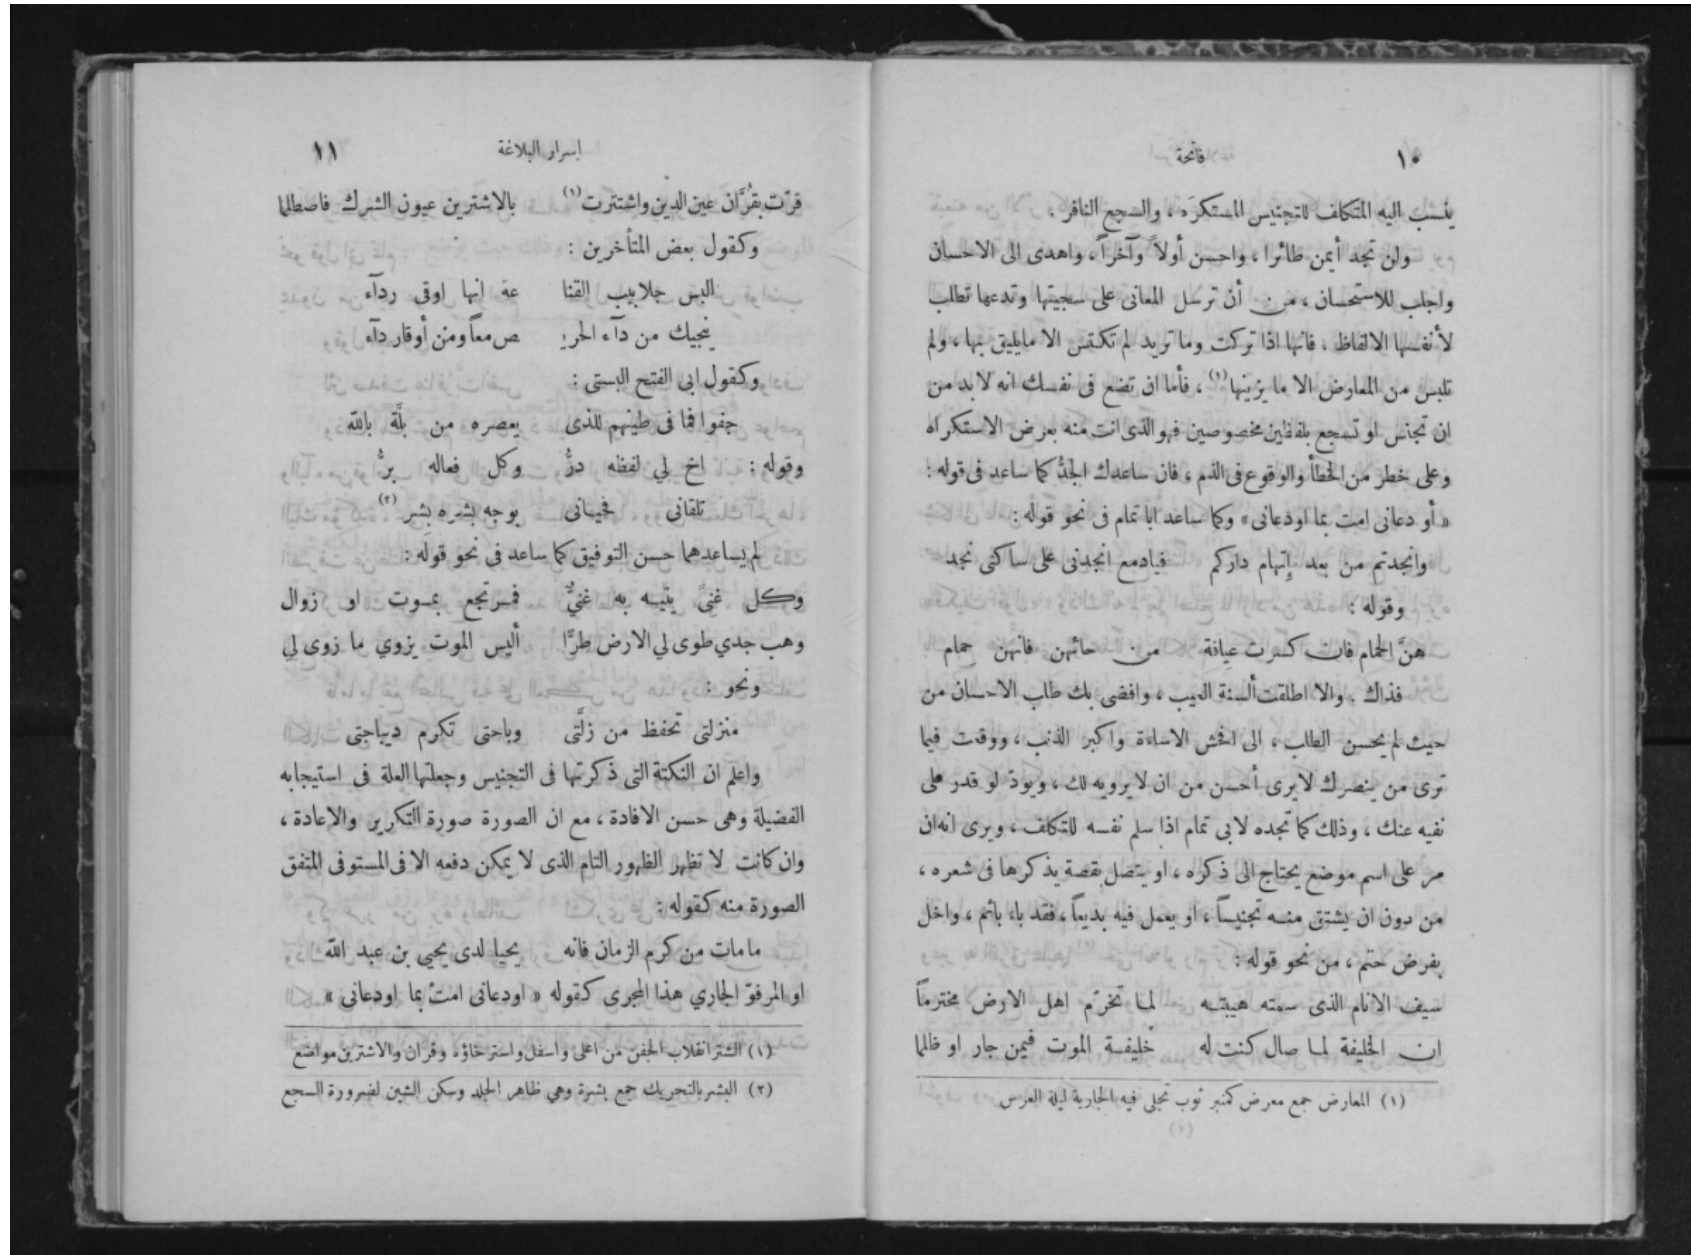 ١٠
فاتحة
ينسب اليه المتكلف للتجنيس المستكره ، والسجع النافر .
ولن تجد أيمن طائرا ، واحسن أولاً وآخراً ، واهدى الى الاحسان
واجلب للاستحسان ، من أن ترسل المعانى على سجيتها وتدعها تطلب
لأنفسها الالفاظ . فانها اذا تركت وما تريد لم تكتس الا مايليق بها ، ولم
تلبس من المعارض الا ما يزينها (١) ، فأما ان تضع فى نفسك انه لابد من
ان تجانس او تسجع بلفظين مخصوصين فهو الذى انت منه بعرض الاستكراه
وعلى خطر من الخطأ والوقوع فى الذم ، فان ساعدك الجدُّ كما ساعد فى قوله :
« أو دعانى امت بما اودعانى » وكما ساعد ابا تمام فى نحو قوله :
وانجدتم من بعد إتهام داركم فيادمع انجدنى على ساكنى نجد
وقوله :
هنَّ الحمام فان كسرت عيافة من حائهن فانهن حمام
فذاك . والا اطلقت ألسنة العيب ، وافضى بك طلب الاحسان من
حيث لم يحسن الطلب ، الى افحش الاساءة واكبر الذنب ، ووقعت فيما
ترى من ينصرك لا يرى أحسن من ان لا يرويه لك ، ويودّ لو قدر على
نفيه عنك ، وذلك كما تجده لابى تمام اذا سلم نفسه للتكلف ، ويرى انه ان
مر على اسم موضع يحتاج الى ذكره ، او يتصل بقصة يذكرها فى شعره ،
من دون ان يشتق منه تجنيساً ، او يعمل فيه بديعاً ، فقد باء بائم ، واخل
بفرض حتم ، من نحو قوله :
سيف الانام الذى سمته هيبته لما تخرّم اهل الارض مخترماً
ان الخليفة لما صال كنت له خليفة الموت فيمن جار او ظلما
(١) المعارض جمع معرض كمنبر ثوب تجلى فيه الجارية ليلة العرس
(٢)
اسرار البلاغة
١١
قرّت بقُرَّان عين الدين واشتترت (١) بالاشترين عيون الشرك فاصطلما
وكقول بعض المتأخرين :
البس جلابيب القنا عة انها اوقى رداء
ينجيك من داء الحر يص معاً ومن أوقار داء
وكقول ابى الفتح البستى :
جفوا فما فى طينهم للذى يعصره من بلّة بالله
وقوله : اخ لي لفظه درُّ وكل فعاله برُّ
تلقانى فحيانى بوجه بشره بِشر (٢)
لم يساعدهما حسن التوفيق كما ساعد فى نحو قوله :
وكل غنىً يتيه به غنيٌّ فمرتجع بموت او زوال
وهب جدي طوى لي الارض طرًّا أليس الموت يزوي ما زوى لي
ونحو :
منزلتى تحفظ من زلَّتى وباحتى تكرم ديباجتى
واعلم ان النكتة التى ذكرتها فى التجنيس وجعلتها العلة فى استيجابه
الفضيلة وهى حسن الافادة ، مع ان الصورة صورة التكرير والاعادة ،
وان كانت لا تظهر الظهور التام الذى لا يمكن دفعه الا فى المستوفى المتفق
الصورة منه كقوله :
ما مات من كرم الزمان فانه يحيا لدى يحيي بن عبد الله
او المرفوّ الجاري هذا المجرى كقوله « اودعانى امتْ بما اودعانى »
(١) الشتر انقلاب الجفن من اعلى واسفل واسترخاؤه وقران والاشترين مواضع
(٢) البشر بالتحريك جمع بشرة وهي ظاهر الجلد وسكن الشين لضرورة السجع